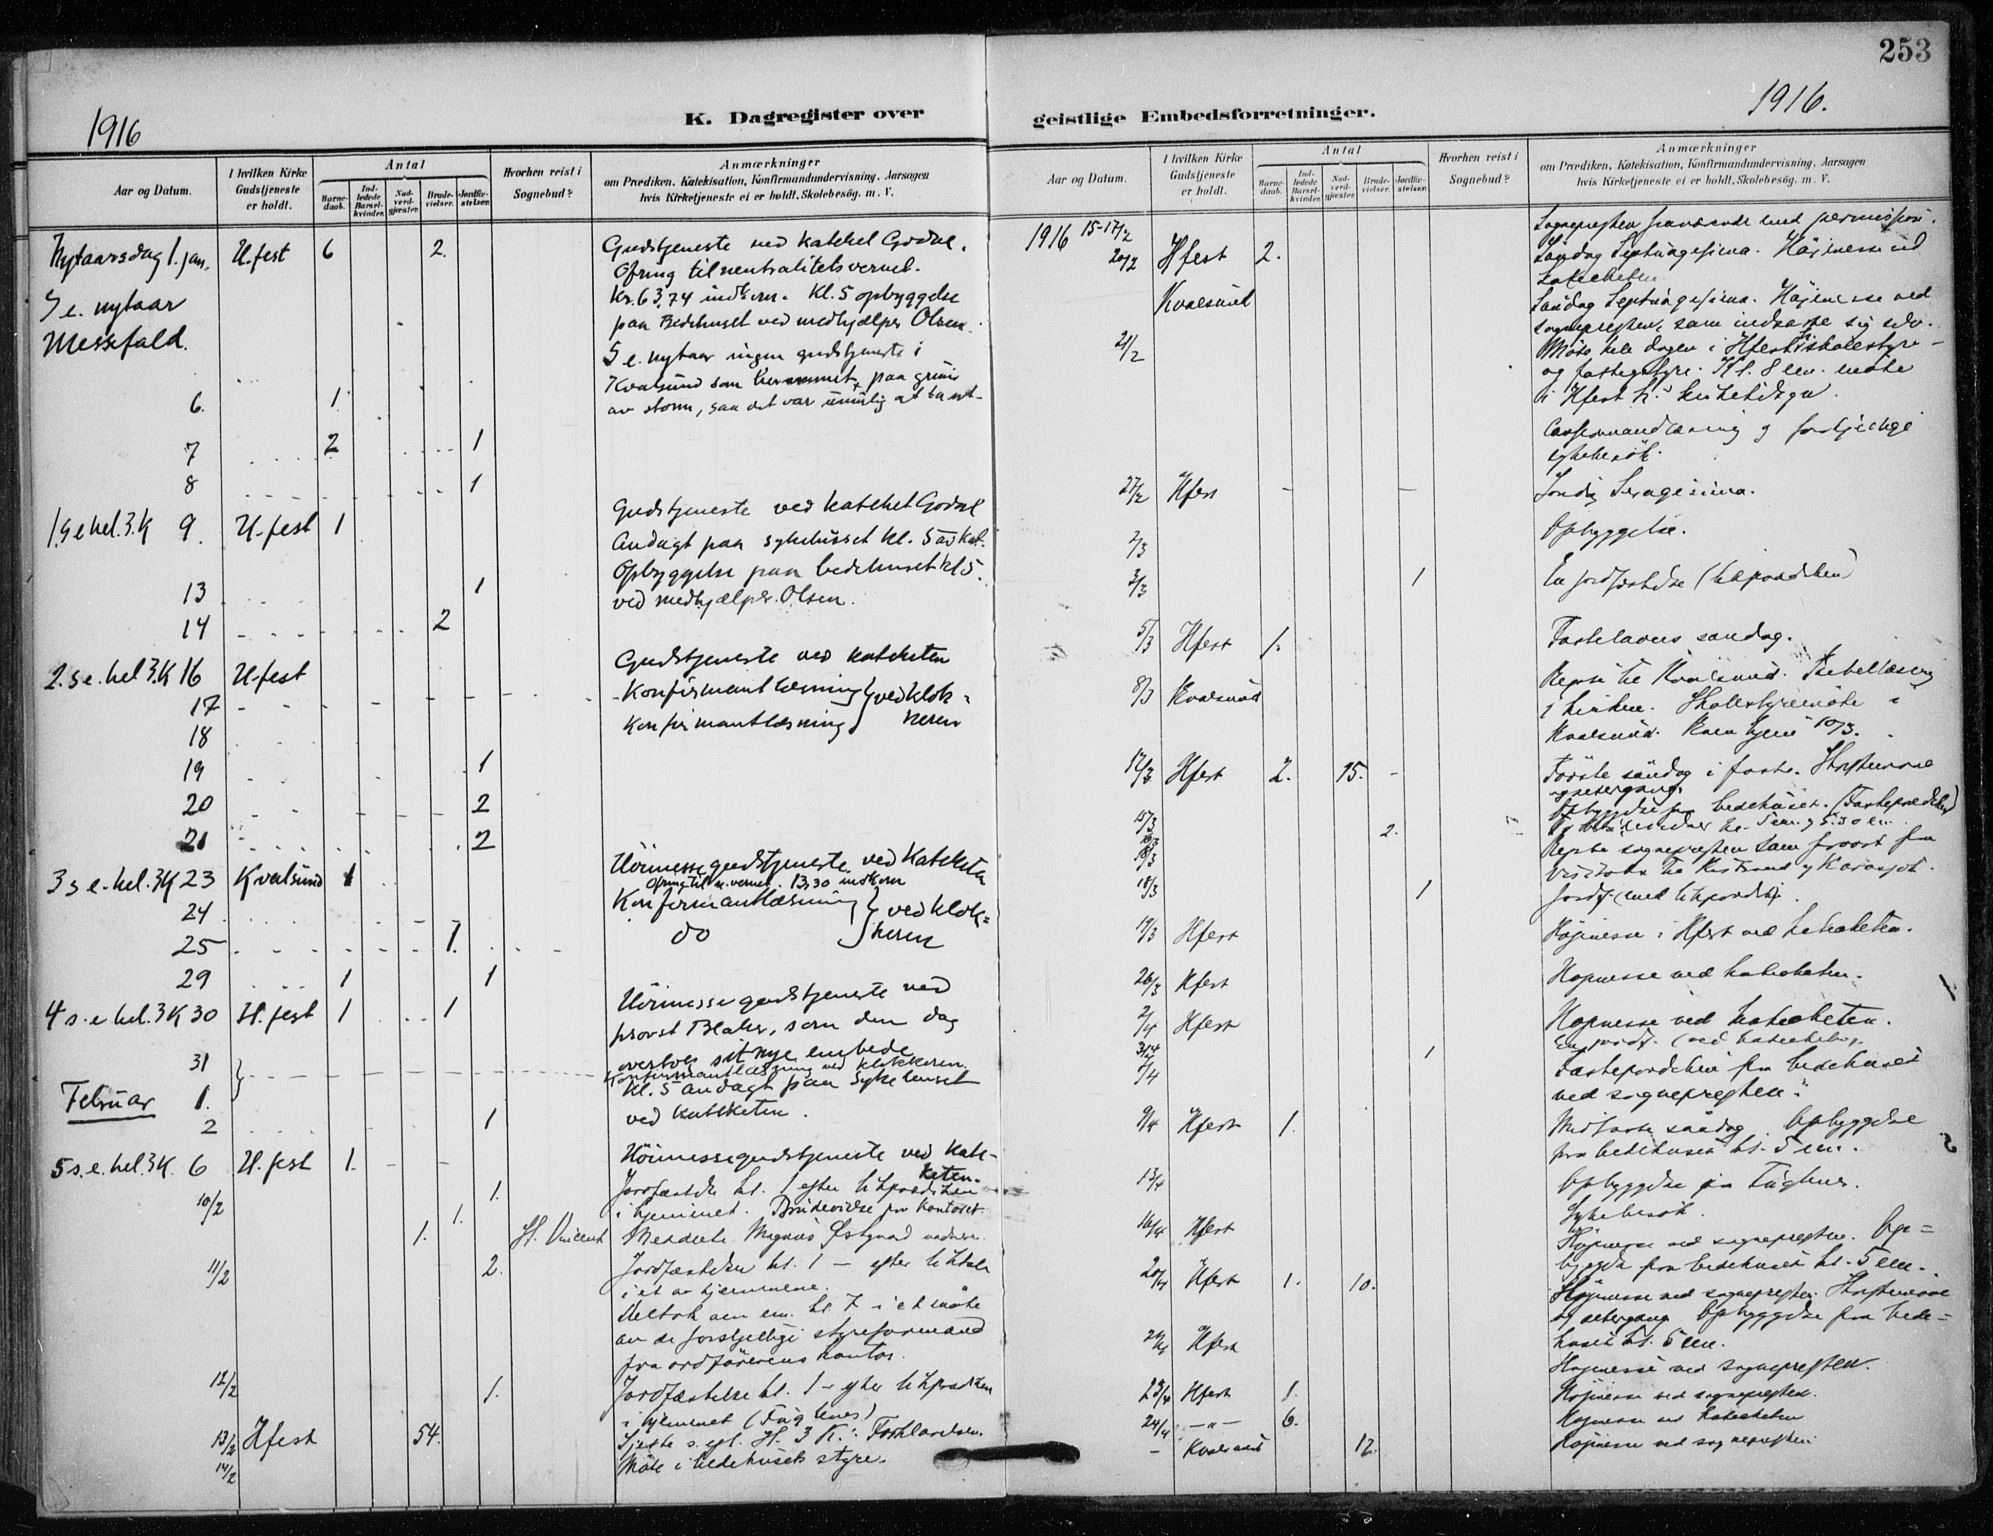 253
1916
K. Dagregister over
geistlige Embedsforretninger.
1916.
Aar og Datum.
I hvilken Kirke Gudstjeneste er holdt.
Antal
Barnedaab.
Indledede Barselkvinder.
Nadverdgjæster.
Brudevielser.
Jordfæstelser.
Hvorhen reist i Sognebud?
Anmærkninger
om Prædiken, Katekisation, Konfirmandundervisning, Aarsagen
hvis Kirketjeneste ei er holdt, Skolebesøg. m. V.
Nytaarsdag 1. jan. H.fest 6 2. Gudstjeneste ved katekel Godal.
Ofring til neutralitetsvernet.
S e. nytaar Kr. 63,74 indkom. Kl. 5 opbyggelse
paa Bedehuset ved medhjælper Olsen.
Messefald. S e. nytaar ingen gudstjeneste i
Kvalsund som paa grund
6. 1 av storm, saa det var umulig at
7 2 1
8 1
1 S e hel. 3. K 9. H.fest 1 Gudstjeneste ved katekel Godal
Andagt paa sykehuset kl. 5 av kat.
Opbyggelse paa bedehuset kl 5.
13 1 ved medhjælper Olsen.
14 2
2. s e. hel 3. K 16 H.fest Gudstjeneste ved kateketen
17 Konfirmantlæsning } ved klok-
18 Konfirmantlæsning } keren
19 1
20 2
21 2
3 s e. hel. 3K 23 Kvalsund 1 Höimessegudstjeneste ved Kateketen
Ofring til n.vernet. 13,30 indkom
24 Konfirmantlæsning } ved klok-
25 1. do } keren
29 1 1
4 s. e hel. 3 K 30 H. fest 1 1 Höimessegudstjeneste ved
provst , som den dag
overtok sit nye embede
31 Konfirmantlæsning ved klokkeren.
Februar 1. Kl. 5 andagt paa Sykehuset
2 1 ved kateketen.
5 s. e. hel. 3K. 6 H. fest 1. Höimessegudstjeneste ved Kate-
keten.
10/2 1. Jordfæstelse kl. 1 efter likprædiken
1. i hjemmet. Brudevielse paa kontoret.
1. Meddelte Magnus
11/2 2. Jordfæstelse kl. 1 – efter liktale
i et av hjemmene.
Deltok em. kl. 7 i et møte
av de forskjellige styreformænd
fra ordförerens kontor.
12/2 1. Jordfæstelse kl. 1 – efter likprædiken
i hjemmet (Fuglenes)
13/2 Hfest 54. Sjette s. e. H. 3 K.: Forklarelsen.
14/2 Møte i bedehusets styre.
Aar og Datum.
I hvilken Kirke Gudstjeneste er holdt.
Antal
Barnedaab.
Indledede Barselkvinder.
Nadverdgjæster.
Brudevielser.
Jordfæstelser.
Hvorhen reist i Sognebud?
Anmærkninger
om Prædiken, Katekisation, Konfirmandundervisning, Aarsagen
hvis Kirketjeneste ei er holdt, Skolebesøg. m. V.
1916 15-17/2 Sognepresten fraværende med permission.
20/2 Hfest 2. Söndag Septuagesima. Höjmesse ved
kateketen.
Kvalsund Söndag Septuagesima. Höjmesse ved
sognepresten, som indsatte sig selv.
21/2 Möte hele dagen i Hfest skolestyre
og fattigstyre. Kl. 8 em. möte
i Hfest
og forskjellige
sykebesök.
27/2 Hfest – – Söndag Sexagesima.
2/3 Opbyggelse.
3/3 1 En jordfæstelse (likprædiken)
5/3 Hfest 1. Fastelavens söndag.
8/3 Kvalsund Reiste til Kvalsund. Bibellæsning
i kirken. Skolestyremöte i
Kvalsund. Kom hjem 10/3.
12/3 Hfest 2. 15. – Förste söndag i faste. Skriftemaal
og altergang.
15/3 Opbyggelse paa bedehuset. (Fasteprædiken)
2. kl. 5 em. og 5.30 em.
Reiste sognepresten som provst paa
visitas til Kistrand og Karasjok.
18/3 1 Jordf. (med likprædik).
19/3 Hfest Höjmesse i Hfest ved kateketen.
26/3 Hfest Höjmesse ved kateketen.
2/4 Hfest Höjmesse ved kateketen.
3/4 1 En jordf. (ved kateketen).
/4 Fasteprædiken paa bedehuset
ved sognepresten.
9/4 Hfest 1. Midfaste söndag. Opbyggelse
paa bedehuset kl. 5 em.
13/4 Opbyggelse paa Fuglenes.
Sykebesök.
16/4 Hfest Höjmesse ved sognepresten. Op-
byggelse paa bedehuset kl. 5 em.
20/4 Hfest 1. 10. Höjmesse ved sognepresten. Skriftemaal
og altergang. Opbyggelse paa bede-
huset kl. 5 em.
Hfest Höjmesse ved sognepresten.
23/4 Hfest 1. Höjmesse ved sognepresten.
24/4 –"– 6. Höjmesse ved kateketen
– Kvalsund 12. Höjmesse ved sognepresten.